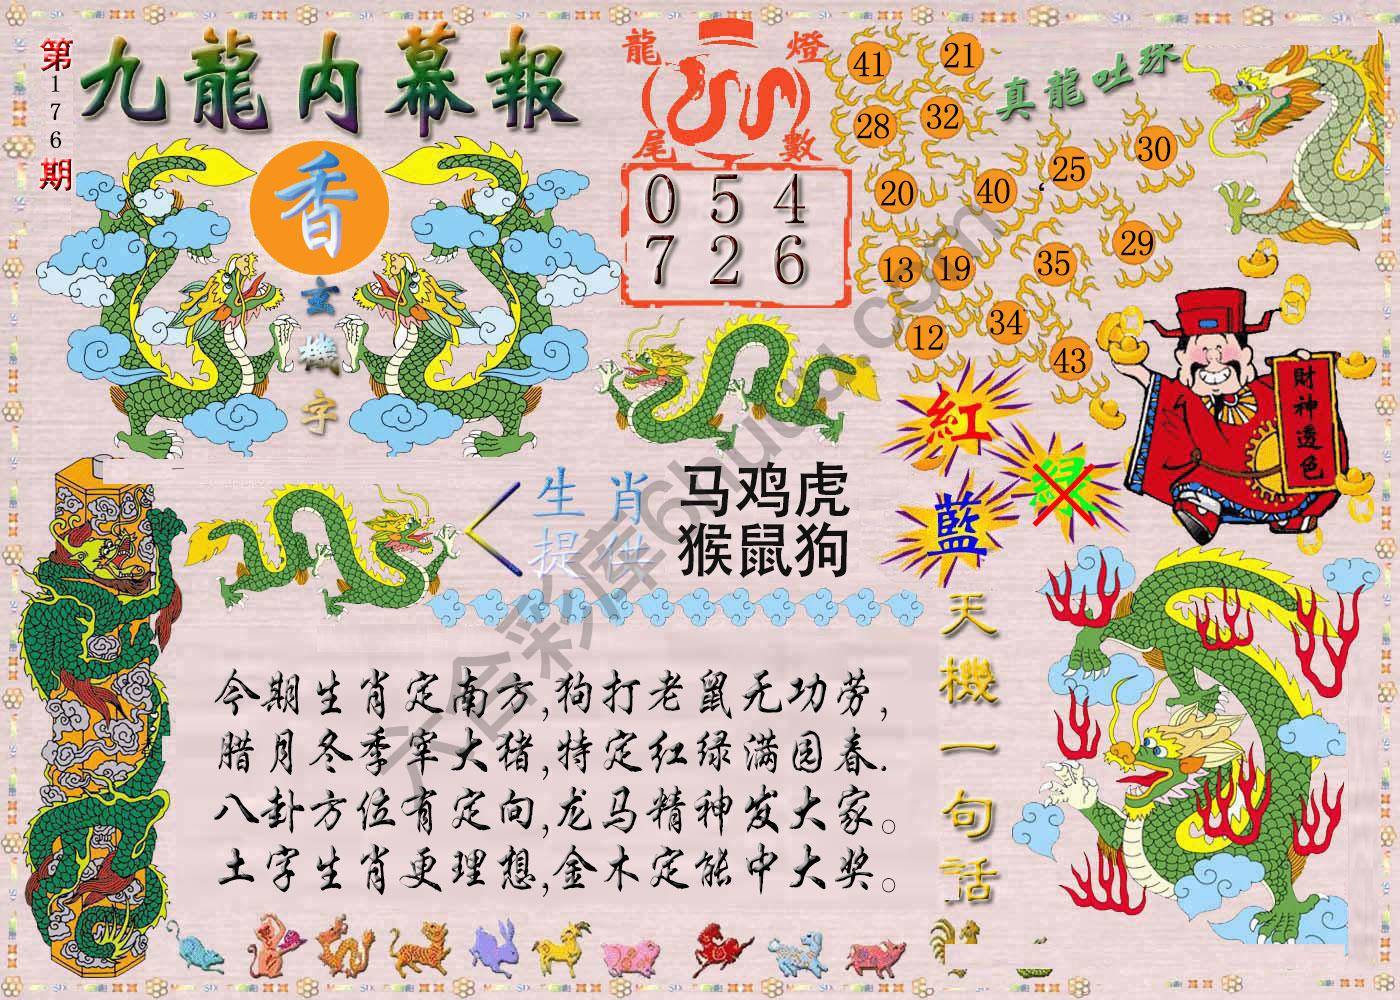 第176期
九龍内幕報
香
玄機字
龍燈尾數
0 5 4
7 2 6
真龍吐珠
41 21
28 32
20 40 25 30
13 19 35 29
12 34 43
財神透色
紅
綠
藍
生肖
提供
马鸡虎
猴鼠狗
天機一句話
今期生肖定南方,狗打老鼠无功劳,
腊月冬季宰大猪,特定红绿满园春.
八卦方位有定向,龙马精神发大家。
土字生肖更理想,金木定能中大奖。
六合彩库6huu.com